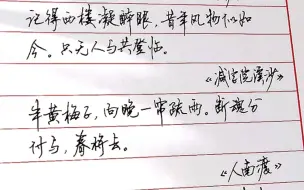 记得西楼凝醉眼，昔年风物似如
今。只无人与共登临。
《减字浣溪沙》
半黄梅子，向晚一帘疏雨。断魂分
付与，春将去。
《人南渡》